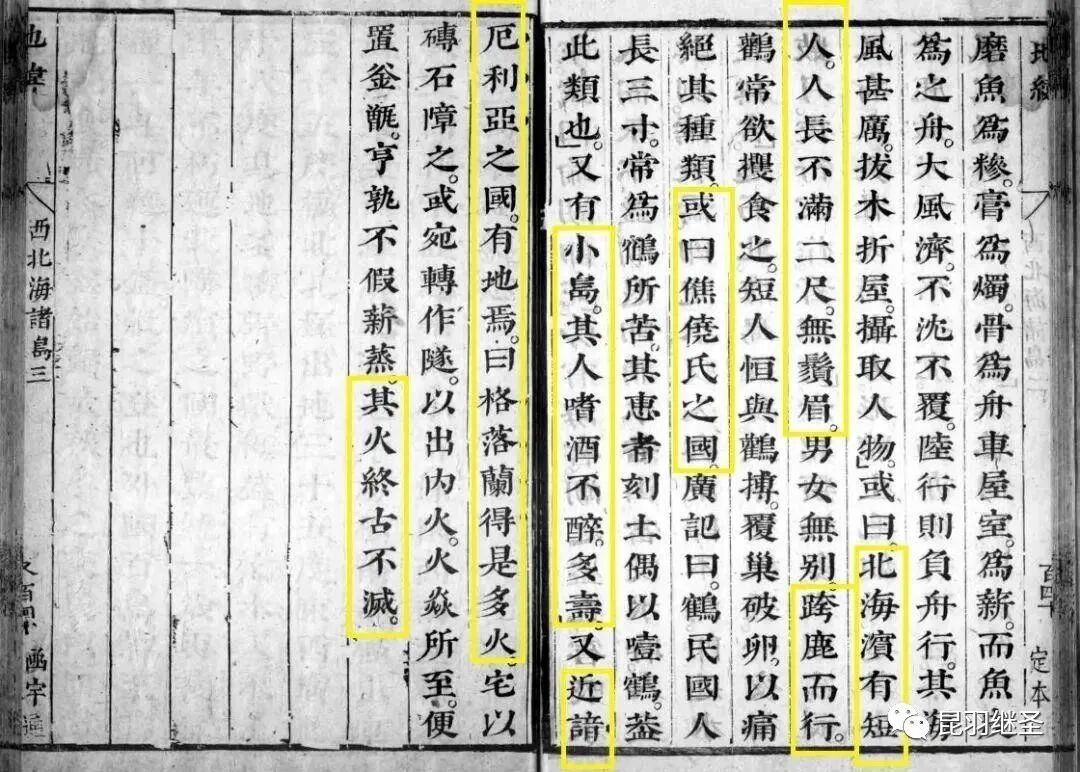 定本
磨魚爲糝。膏爲燭。骨爲舟車屋室。爲薪。而魚。
爲之舟。大風濟。不沈不覆。陸行則負舟行。其海
風甚厲。拔木折屋。攝取人物。」或曰。北海濱有短
人。人長不滿二尺。無鬚眉。男女無别。跨鹿而行。
鸛常欲攫食之。短人恒與鸛搏。覆巢破卵。以痛
絕其種類。或曰僬僥氏之國。廣記曰。鶴民國人
長三寸。常爲鶴所苦。其惠者刻土偶以噎鶴。葢
此類也。」又有小島。其人嗜酒不醉。多壽。又近諳
厄利亞之國。有地焉。曰格落蘭得是多火。宅以
磚石障之。或宛轉作隧。以出內火。火焱所至。便
置釜甑。亨孰不假薪蒸。其火終古不滅。
地緯 西北海諸島三 函宇通
昆羽继圣